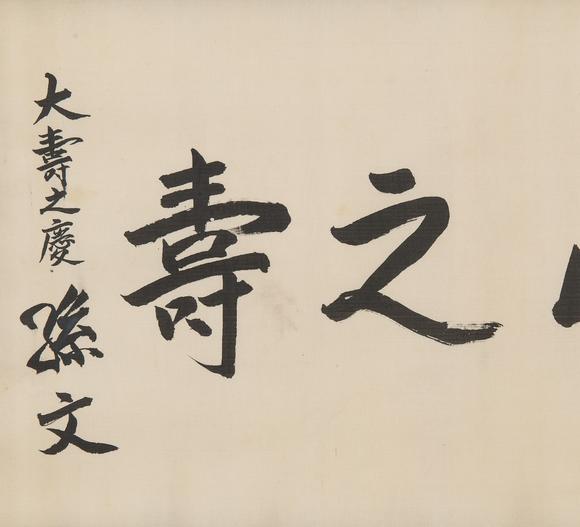 之壽
大壽之慶
孫文